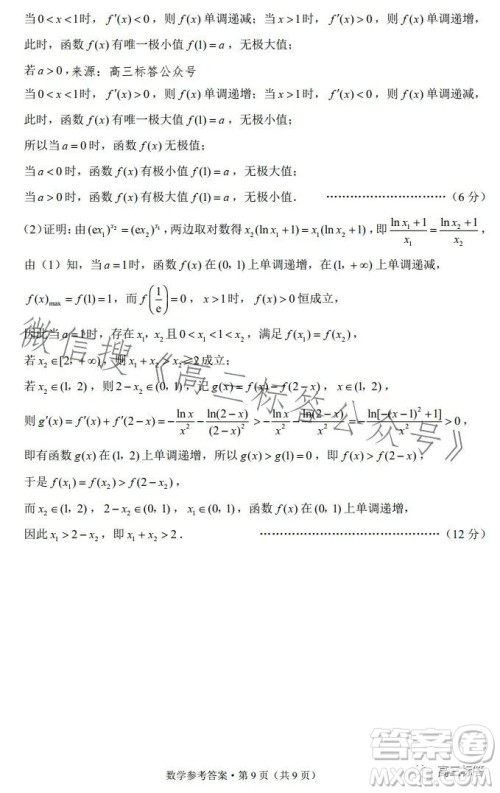 当 0 < x < 1 时，f′(x) < 0，f(x) 单调递减；当 x > 1 时，f′(x) > 0，f(x) 单调递增，
此时，函数 f(x) 有唯一极小值 f(1) = a，无极大值；
若 a > 0，来源：高三标答公众号
当 0 < x < 1 时，f′(x) > 0，f(x) 单调递增；当 x > 1 时，f′(x) < 0，f(x) 单调递减，
此时，函数 f(x) 有唯一极大值 f(1) = a，无极小值；
所以当 a = 0 时，函数 f(x) 无极值；
当 a < 0 时，函数 f(x) 有极小值 f(1) = a，无极大值；
当 a > 0 时，函数 f(x) 有极大值 f(1) = a，无极小值． ……………………（6 分）
（2）证明：由 (ex₁)^{x₂} = (ex₂)^{x₁}，两边取对数得 x₂(ln x₁ + 1) = x₁(ln x₂ + 1)，即 (ln x₁ + 1)/x₁ = (ln x₂ + 1)/x₂，
由（1）知，当 a = 1 时，函数 f(x) 在 (0, 1) 上单调递增，在 (1, +∞) 上单调递减，
f(x)max = f(1) = 1，而 f(1/e) = 0，x > 1 时，f(x) > 0 恒成立，
因此当 a = 1 时，存在 x₁, x₂ 且 0 < x₁ < 1 < x₂，满足 f(x₁) = f(x₂)，
若 x₂ ∈ [2, +∞)，则 x₁ + x₂ > x₂ ≥ 2 成立；
若 x₂ ∈ (1, 2)，则 2 − x₂ ∈ (0, 1)，记 g(x) = f(x) − f(2 − x)，x ∈ (1, 2)，
则 g′(x) = f′(x) + f′(2 − x) = −ln x/x² − ln(2 − x)/(2 − x)² > −ln x/x² − ln(2 − x)/x² = −ln[−(x − 1)² + 1]/x² > 0，
即有函数 g(x) 在 (1, 2) 上单调递增，所以 g(x) > g(1) = 0，即 f(x) > f(2 − x)，
于是 f(x₁) = f(x₂) > f(2 − x₂)，
而 x₂ ∈ (1, 2)，2 − x₂ ∈ (0, 1)，x₁ ∈ (0, 1)，函数 f(x) 在 (0, 1) 上单调递增，
因此 x₁ > 2 − x₂，即 x₁ + x₂ > 2． ……………………（12 分）
微信搜《高三标答公众号》
数学参考答案 · 第 9 页（共 9 页）
高三标答
答案圈